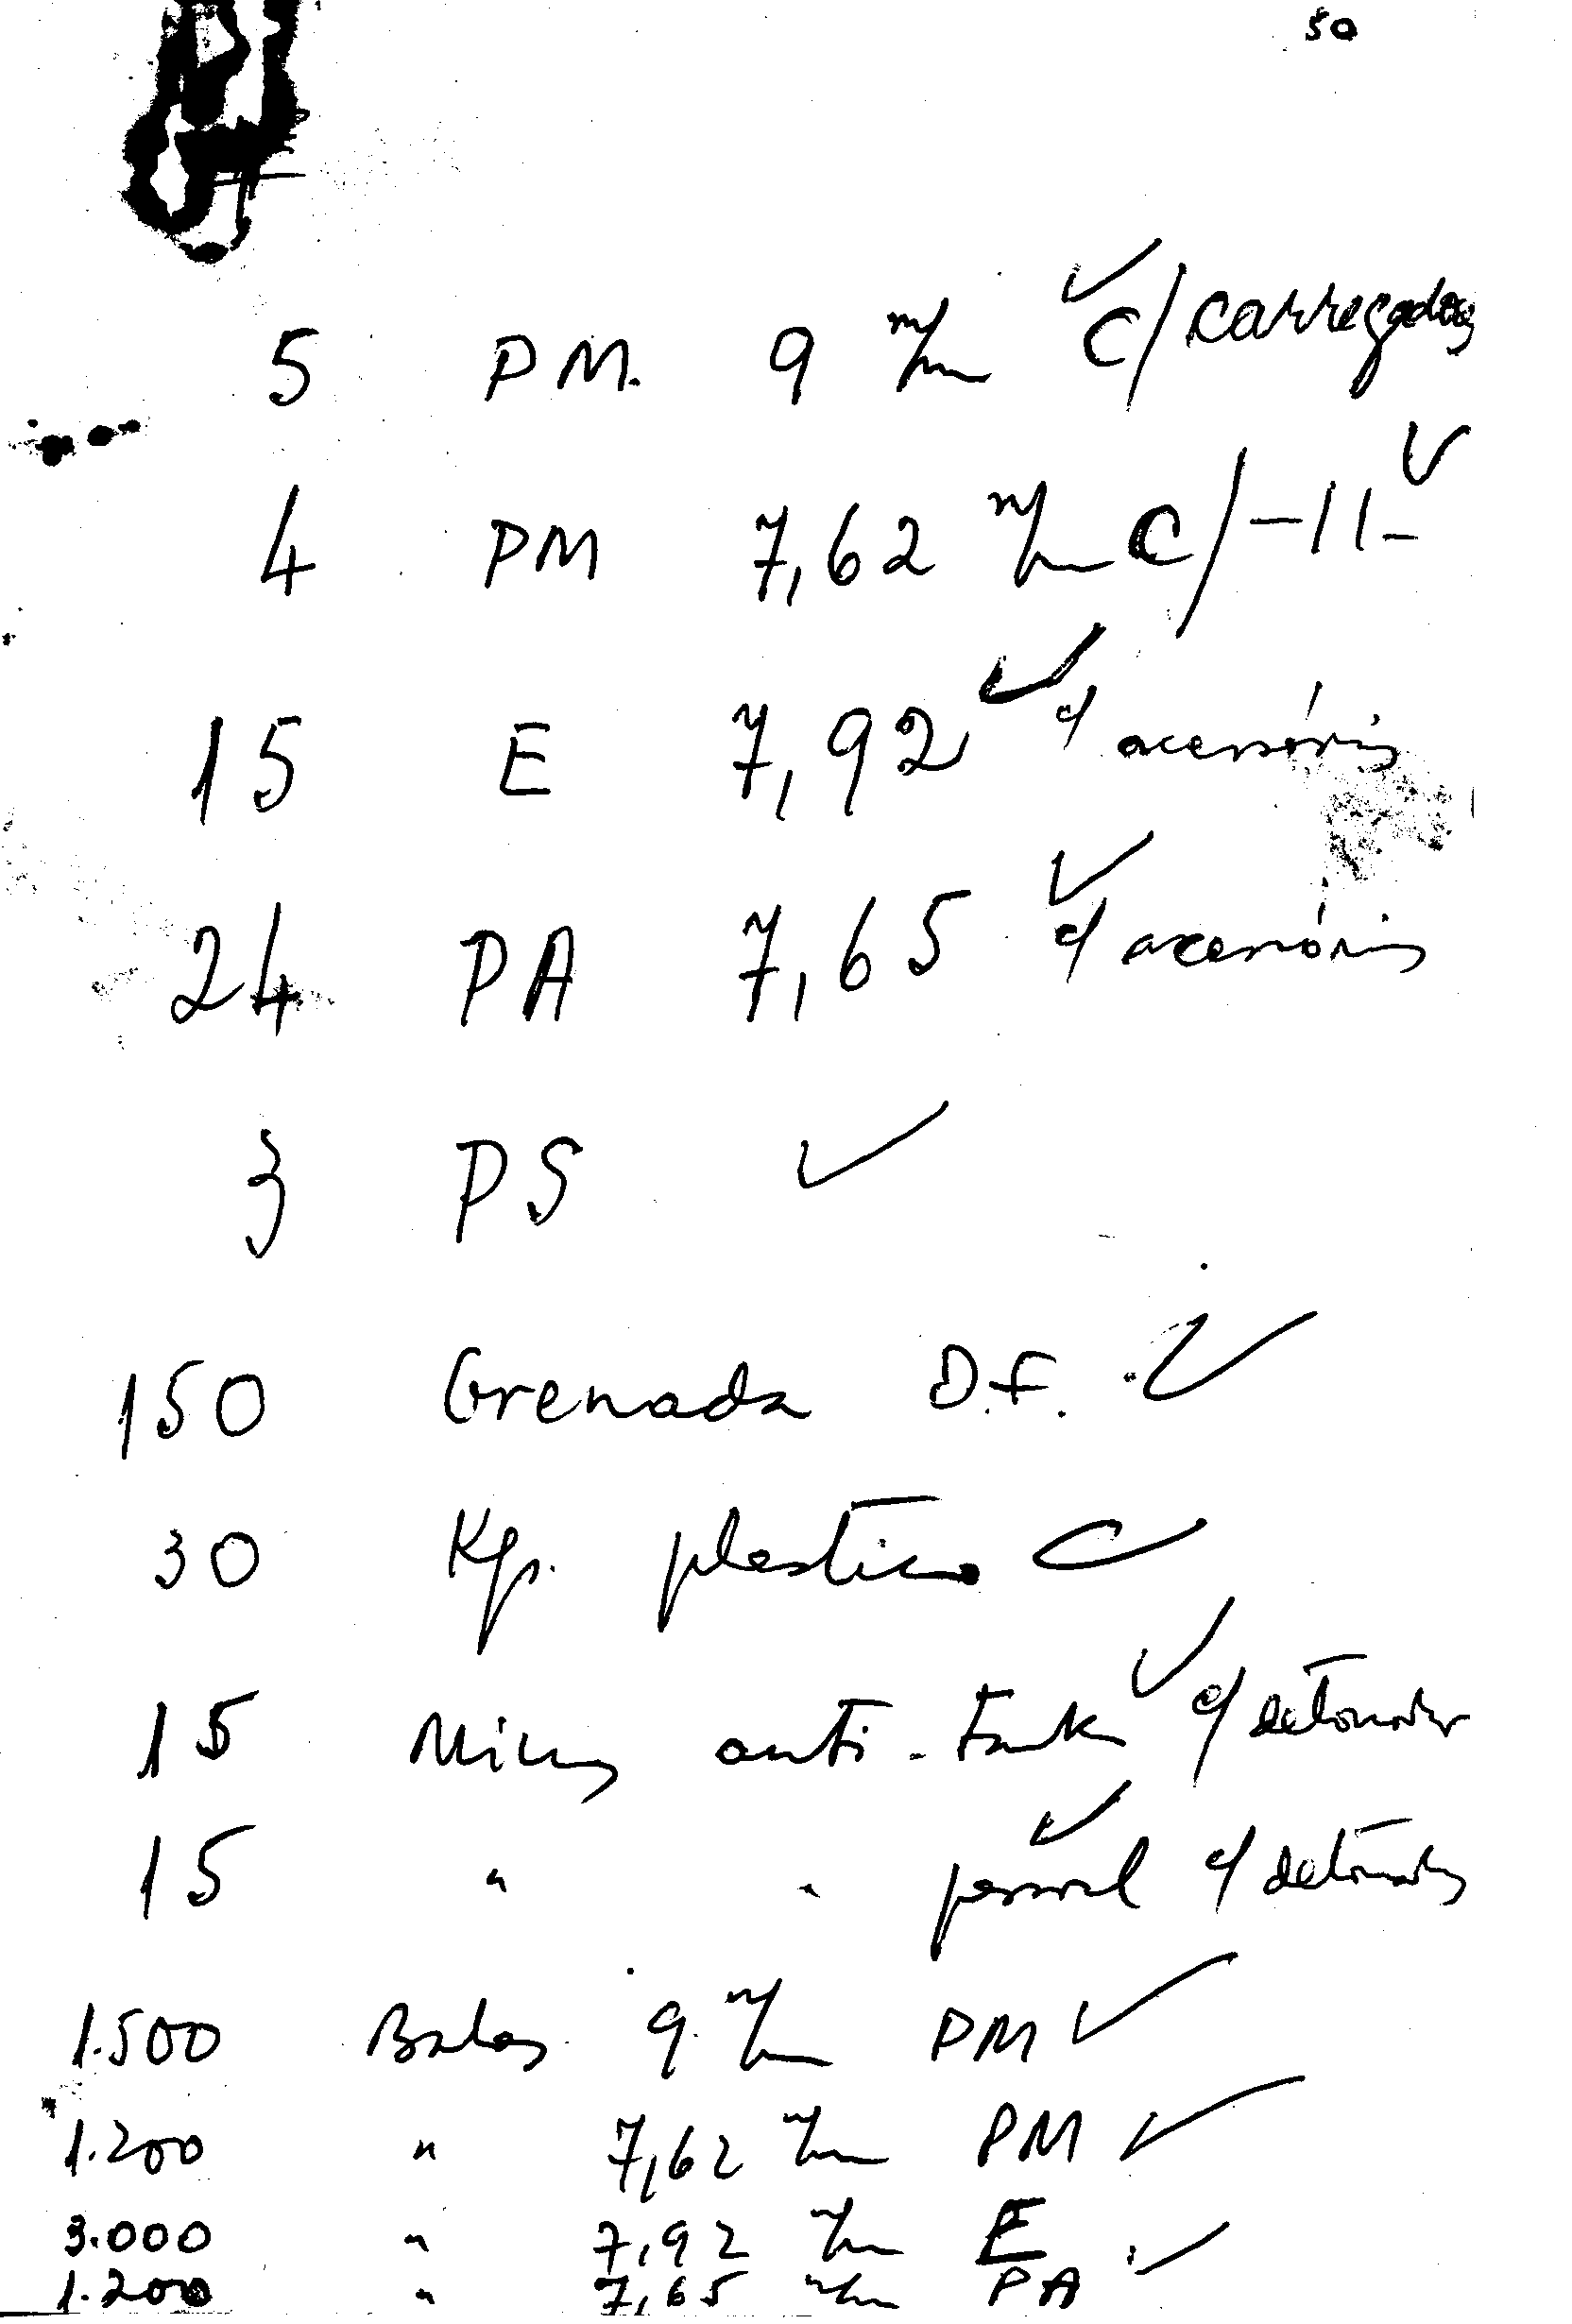 50
5 PM. 9 m/m c/ carregadores
4 PM 7,62 m/m c/ -11-
15 E 7,92 c/ acessórios
24 PA 7,65 c/ acessórios
3 PS
150 Grenada D.F.
30 Kgr. plastico
15 Minas anti-tank c/ detonador
15 " " pessoal c/ detonador
1.500 Balas 9 m/m PM
1.200 " 7,62 m/m PM
3.000 " 7,92 m/m E
1.200 " 7,65 m/m PA